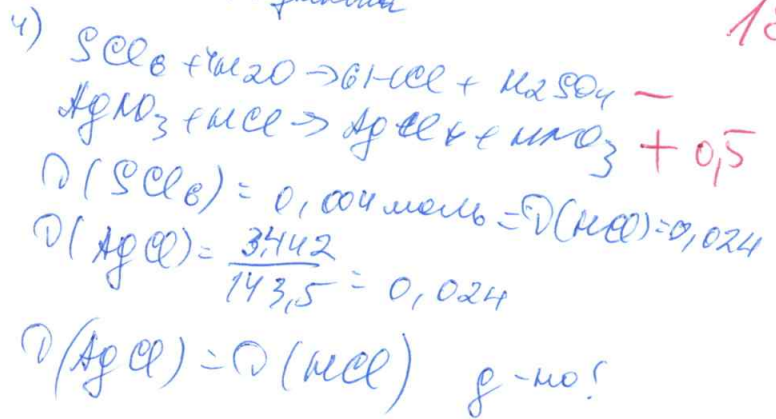 4)
SCl6 + 4H2O → 6HCl + H2SO4 –
AgNO3 + HCl → AgCl↓ + HNO3 + 0,5
ν(SCl6) = 0,004 моль = ν(HCl) = 0,024
ν(AgCl) = 3,442 / 143,5 = 0,024
ν(AgCl) = ν(HCl) д-но!